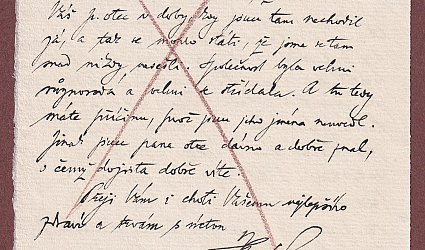 Váš p. otec v doby, kdy jsem tam nechodil
já, a tak se mohlo státi, že jsme se tam
snad nikdy nesešli. Společnost byla velmi
různorodá a velmi se střídala. A tu tedy
máte příčinu, proč jsem jeho jména neuvedl.
Jinak jsem pana otce dávno a dobře znal,
o čemž dojista dobře víte.
Přeji Vám i choti Vašemu nejlepšího
zdraví a trvám s úctou